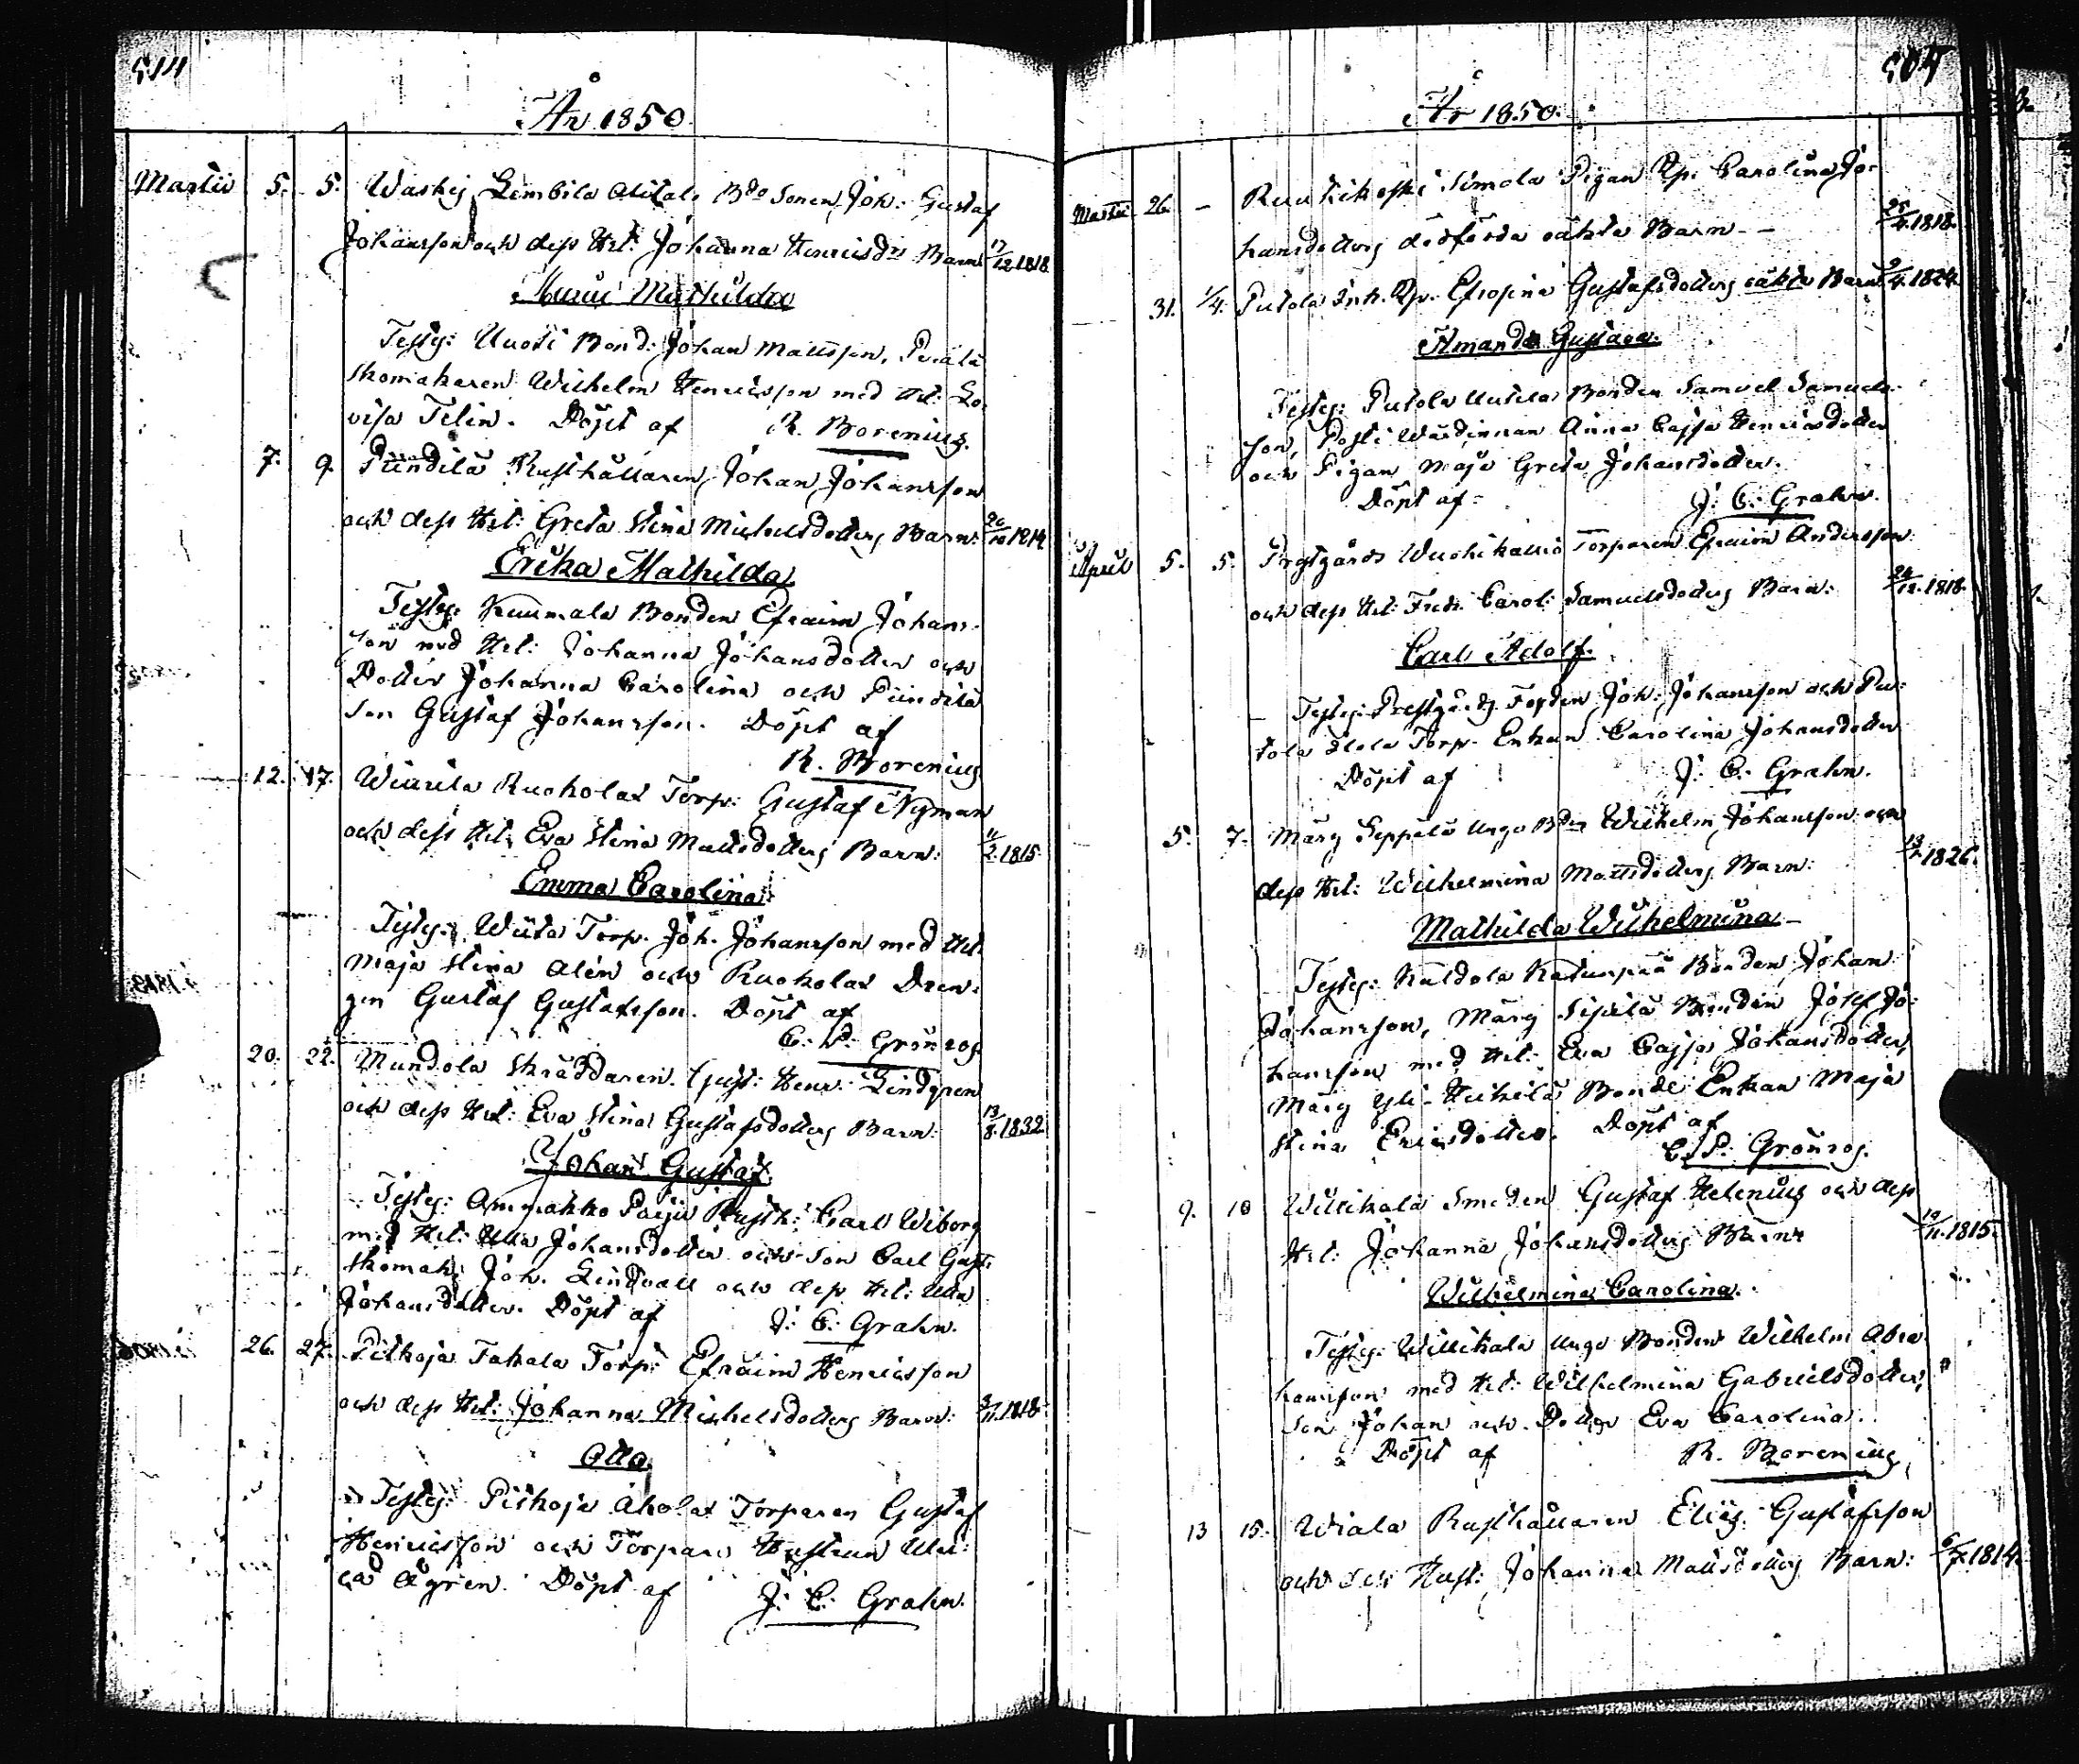 År 1850.
Martii 5. 5. Waskis Lembila Alitalo Bdo Sonen Joh: Gustaf
Johansson och dess Hst: Johanna Henricsdrs Barn 17/12 1818
Maria Mathilda
Testes: Uuoti Bond: Johan Mattsson, Perälä
Skomakaren Wilhelm Henricsson med Hst: Lo-
visa Telin. Döpt af R. Borenius.
7. 9. Pündilä Rusthållaren Johan Johansson
och dess Hst: Greta Stina Michelsdotters Barn:
Erika Mathilda
Testes: Kuumala Bonden Efraim Johans-
son med Hst: Johanna Johansdotter och
Dotter Johanna Carolina och Pündilä
Son Gustaf Johansson. Döpt af
R. Borenius
12. 17. Ruoholax Torp: Gustaf Nyman
och dess Hst: Eva Stina Mattsdotters Barn: 11/2. 1815.
Emma Carolina
Testes: Wiita Torp. Joh. Johansson med Hst.
Maja Stina Alén och Ruoholax Dren-
gen Gustaf Gustafsson. Döpt af
C. P. Grönros.
20. 22. Mundola Skräddaren Gust: Henr: Lindgren
och dess Hst: Eva Stina Gustafsdotters Barn: 13/8. 1832
Johan Gustaf
Testes: Rusth: Carl Wiborg
med Hst: Ulla Johansdotter och Son Carl Gust:
Skomak: Joh. Lindvall och dess Hst: Ulla
Johansdotter. Döpt af J: C: Grahn.
26. 27. Pitkoja Takala Torp: Efraim Henricsson
och dess Hst: Johanna Michelsdotters Barn: 1818
Otto
Testes: Pitkoja Aholax Torparen Gustaf
Henricsson och Torpare Hustrun Ulri-
ca Ågren. Döpt af J. C. Grahn.
År 1850.
Martii 26. – Simola Pigan Carolina Jo-
hansdotters dödfödda oäkta Barn – 25/4. 1818.
31. 1/4. Putola Efrosina Gustafsdotters oäkta Barn 1824.
Amanda Gustava.
Testes: Putola Uutela Bonden Samuel Samuels-
son, Posti Wärdinnan Anna Cajsa Henricsdotter
och Pigan Maja Greta Johansdotter.
Döpt af J: C: Grahn.
April 5. 5. Prestgårds Wuohikallio Torparen Efraim Andersson
och dess Hst: Fredr. Carol: Samuelsdotters Barn: 24/12. 1818.
Carl Adolf.
Testes: Prestgårds Fogden Joh: Johansson och Pu-
tola Torp. Enkan Carolina Johansdotter
Döpt af J: C: Grahn.
5. 7. Märy Seppälä Unga Wilhelm Johansson och
dess Hst: Wilhelmina Mattsdotters Barn: 1826.
Mathilda Wilhelmina
Testes: Kaldola Bonden Johan
Johansson, Märy Sipilä Bonden Josef Jo-
hansson med Hst: Eva Cajsa Johansdotter,
Märy Yli-Heikilä Bonde Enkan Maja
Stina Ericsdotter. Döpt af
C. P. Grönros.
9. 10 Willikala Smeden Gustaf Helenius och dess
Hst: Johanna Johansdotters Barn 19/11. 1815.
Wilhelmina Carolina.
Testes: Willikala Unga Bonden Wilhelm Abra-
hamsson med Hst: Wilhelmina Gabrielsdotter,
Son Johan och Dotter Eva Carolina.
Döpt af R. Borenius,
13 15. Wiala Rusthållaren Elias Gustafsson
och dess Hust: Johanna Mattsdotters Barn: 6/7. 1814.